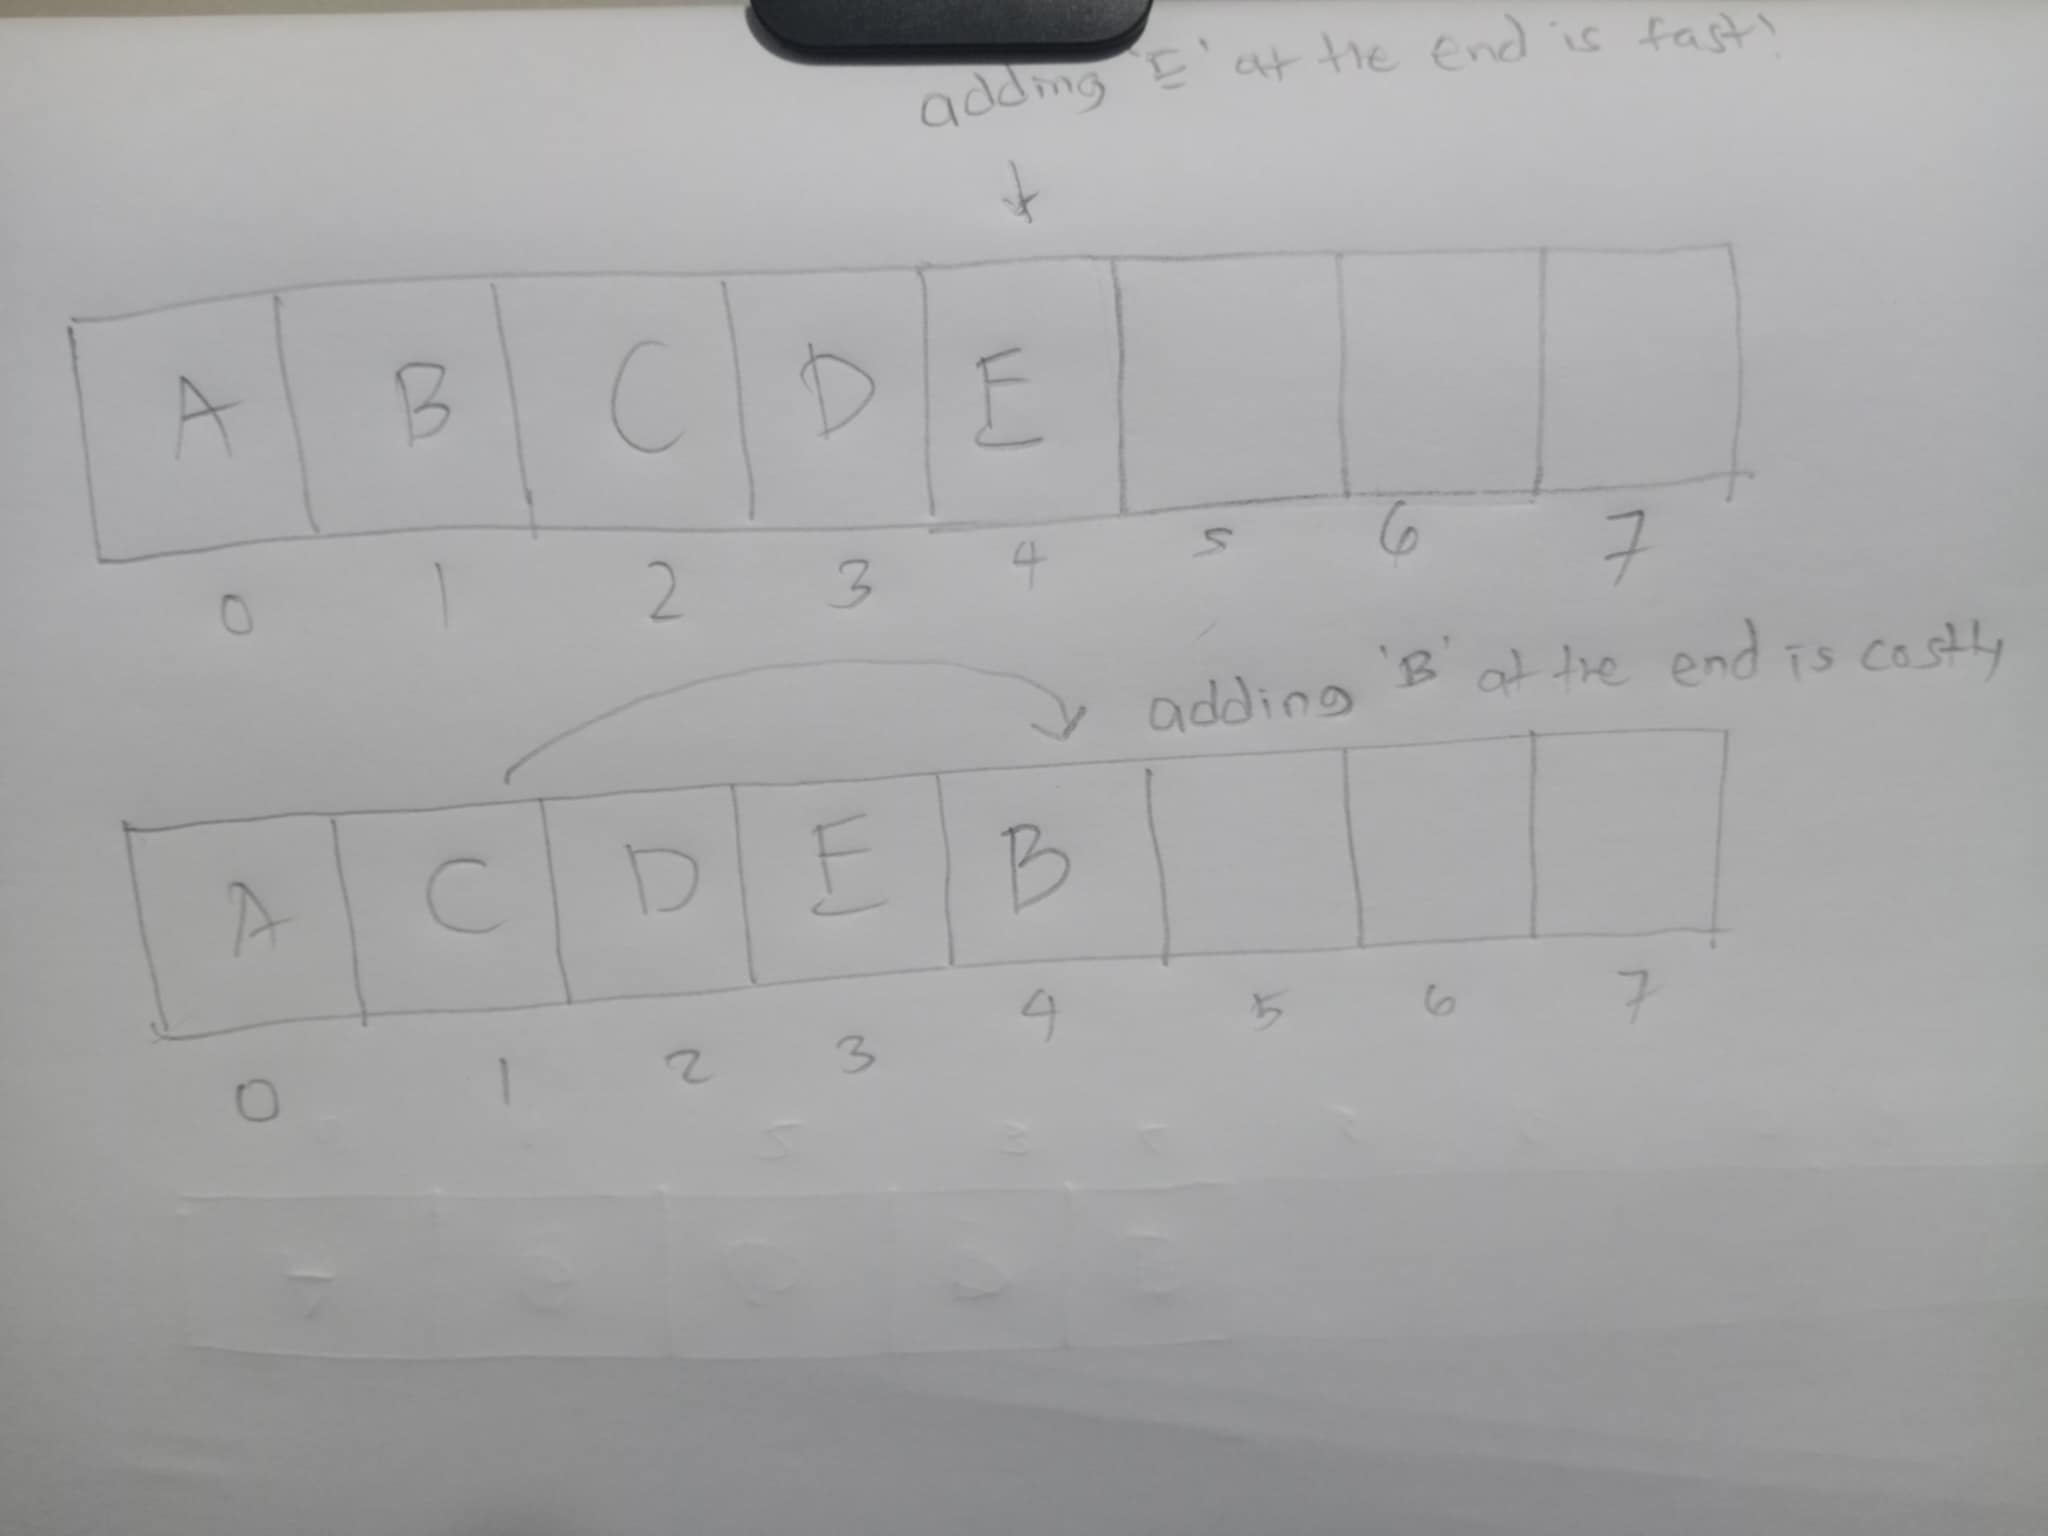 adding 'E' at the end is fast!
A B C D E
0 1 2 3 4 5 6 7
adding 'B' at the end is costly
A C D E B
0 1 2 3 4 5 6 7